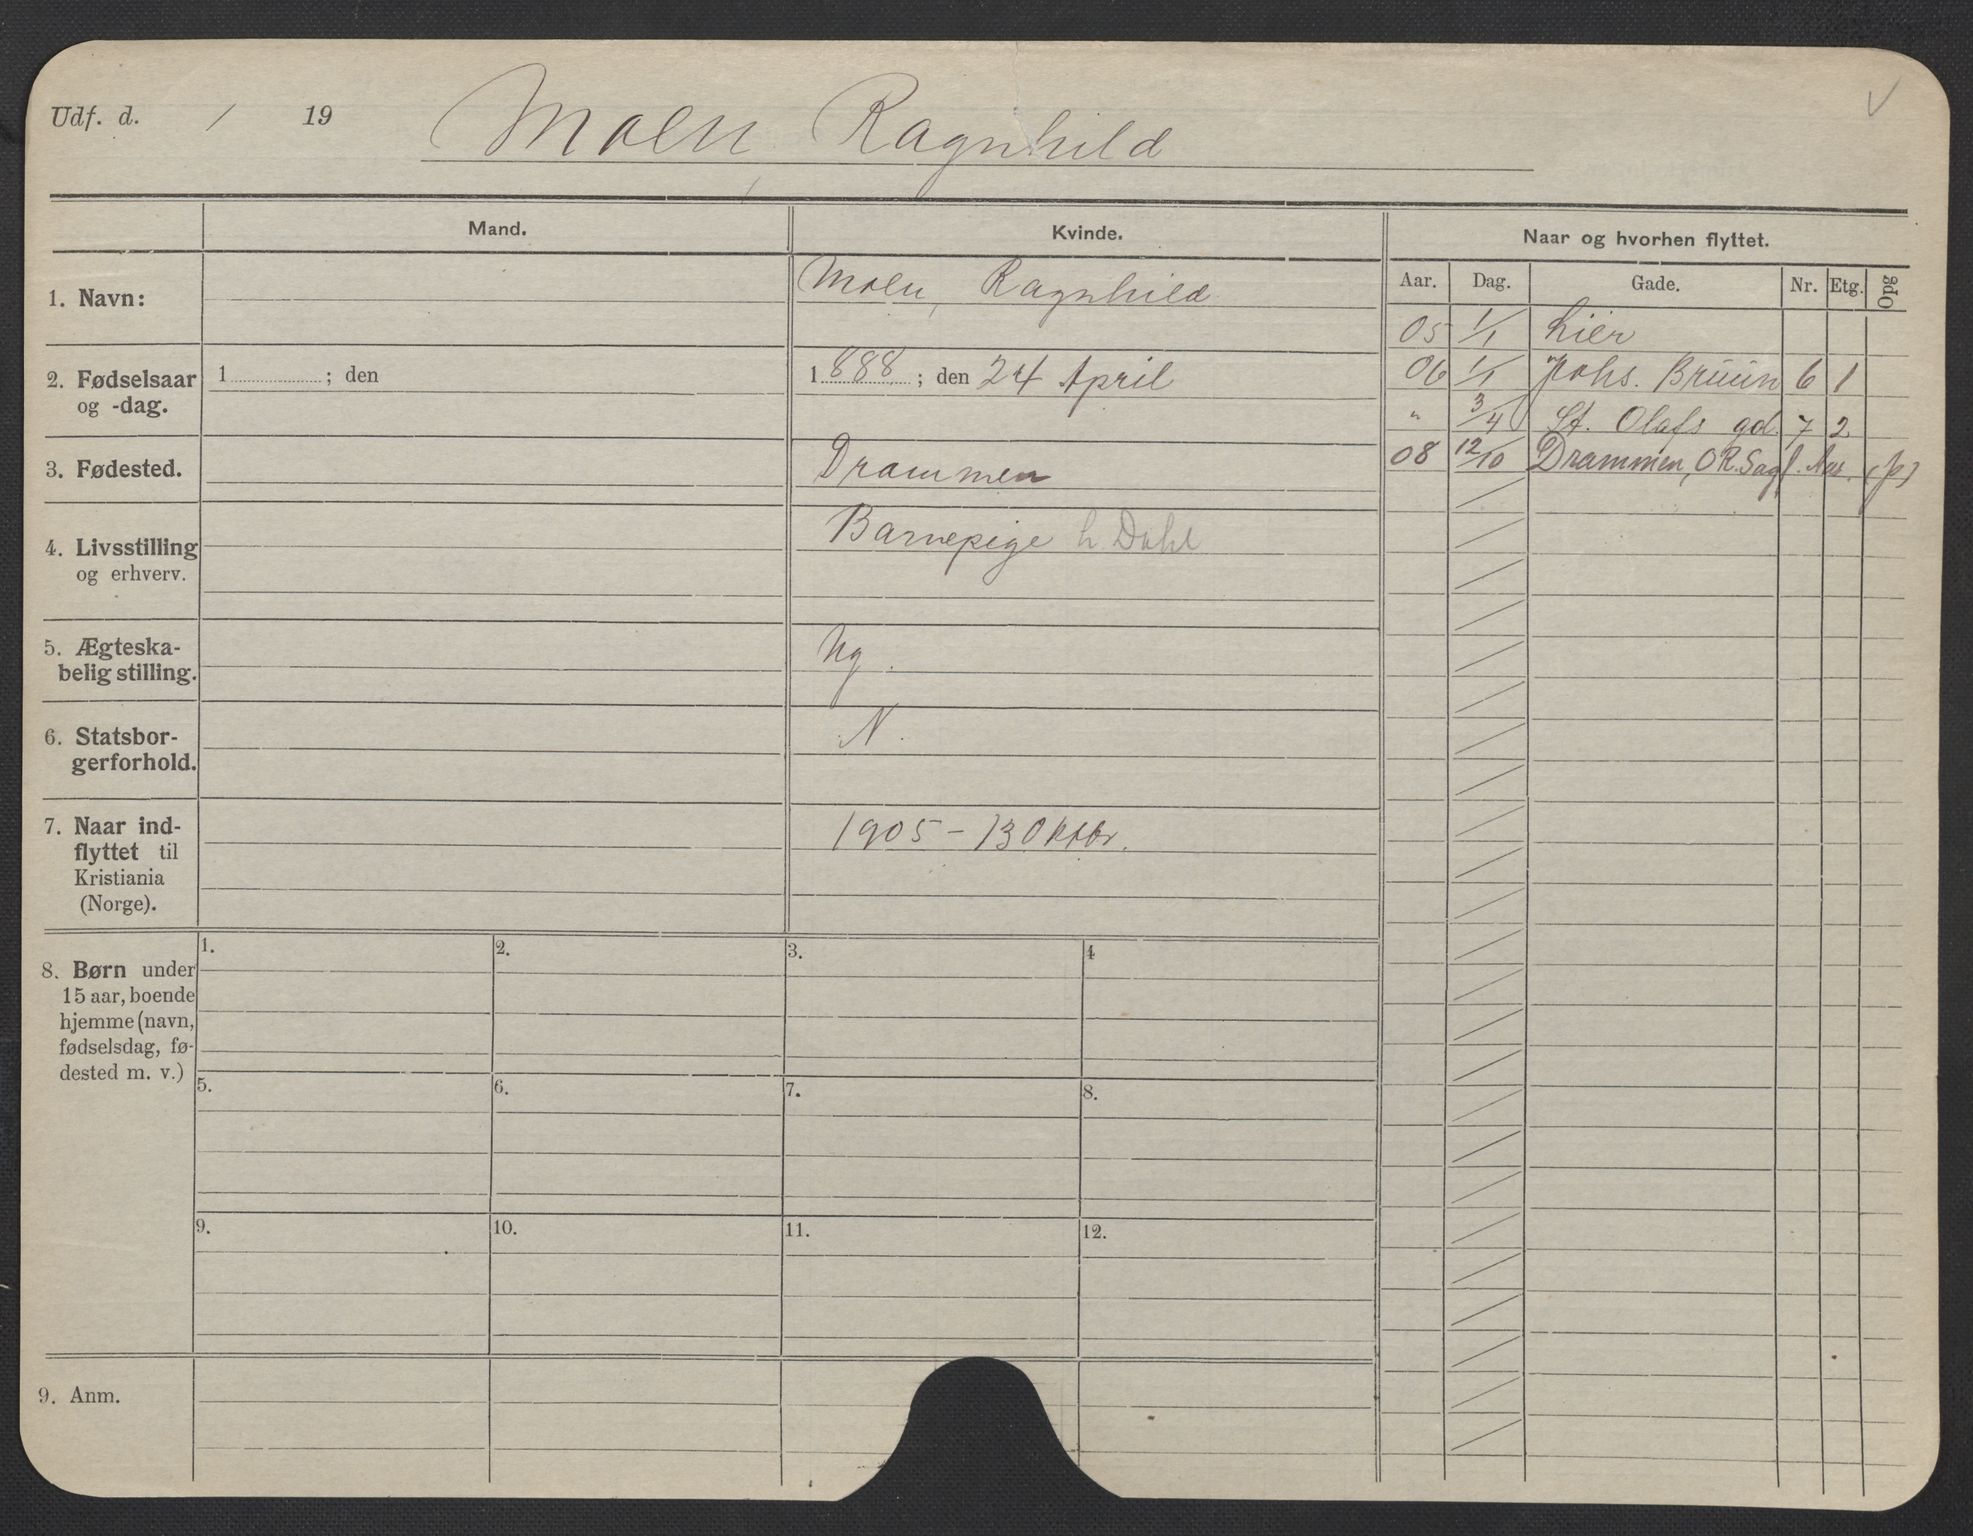 Udf. d. / 19 Moen, Ragnhild
Mand. Kvinde. Naar og hvorhen flyttet.
Aar. Dag. Gade. Nr. Etg. Opg
1. Navn: Moen, Ragnhild
05 1/1 Lier
2. Fødselsaar og -dag. 1 ; den 1888 ; den 24 April
06 1/1 Johs. Bruun 6 1
" 3/4 St. Olafs gd. 7 2
3. Fødested. Drammen
08 12/10 Drammen, O.R. Sag
4. Livsstilling og erhverv. Barnepige h. Dahl
5. Ægteska-
belig stilling. Ug.
6. Statsbor-
gerforhold. N.
7. Naar ind-
flyttet til
Kristiania
(Norge). 1905 - 13 Oktbr.
8. Børn under
15 aar, boende
hjemme (navn,
fødselsdag, fø-
dested m. v.)
1. 2. 3. 4
5. 6. 7. 8.
9. 10. 11. 12.
9. Anm.